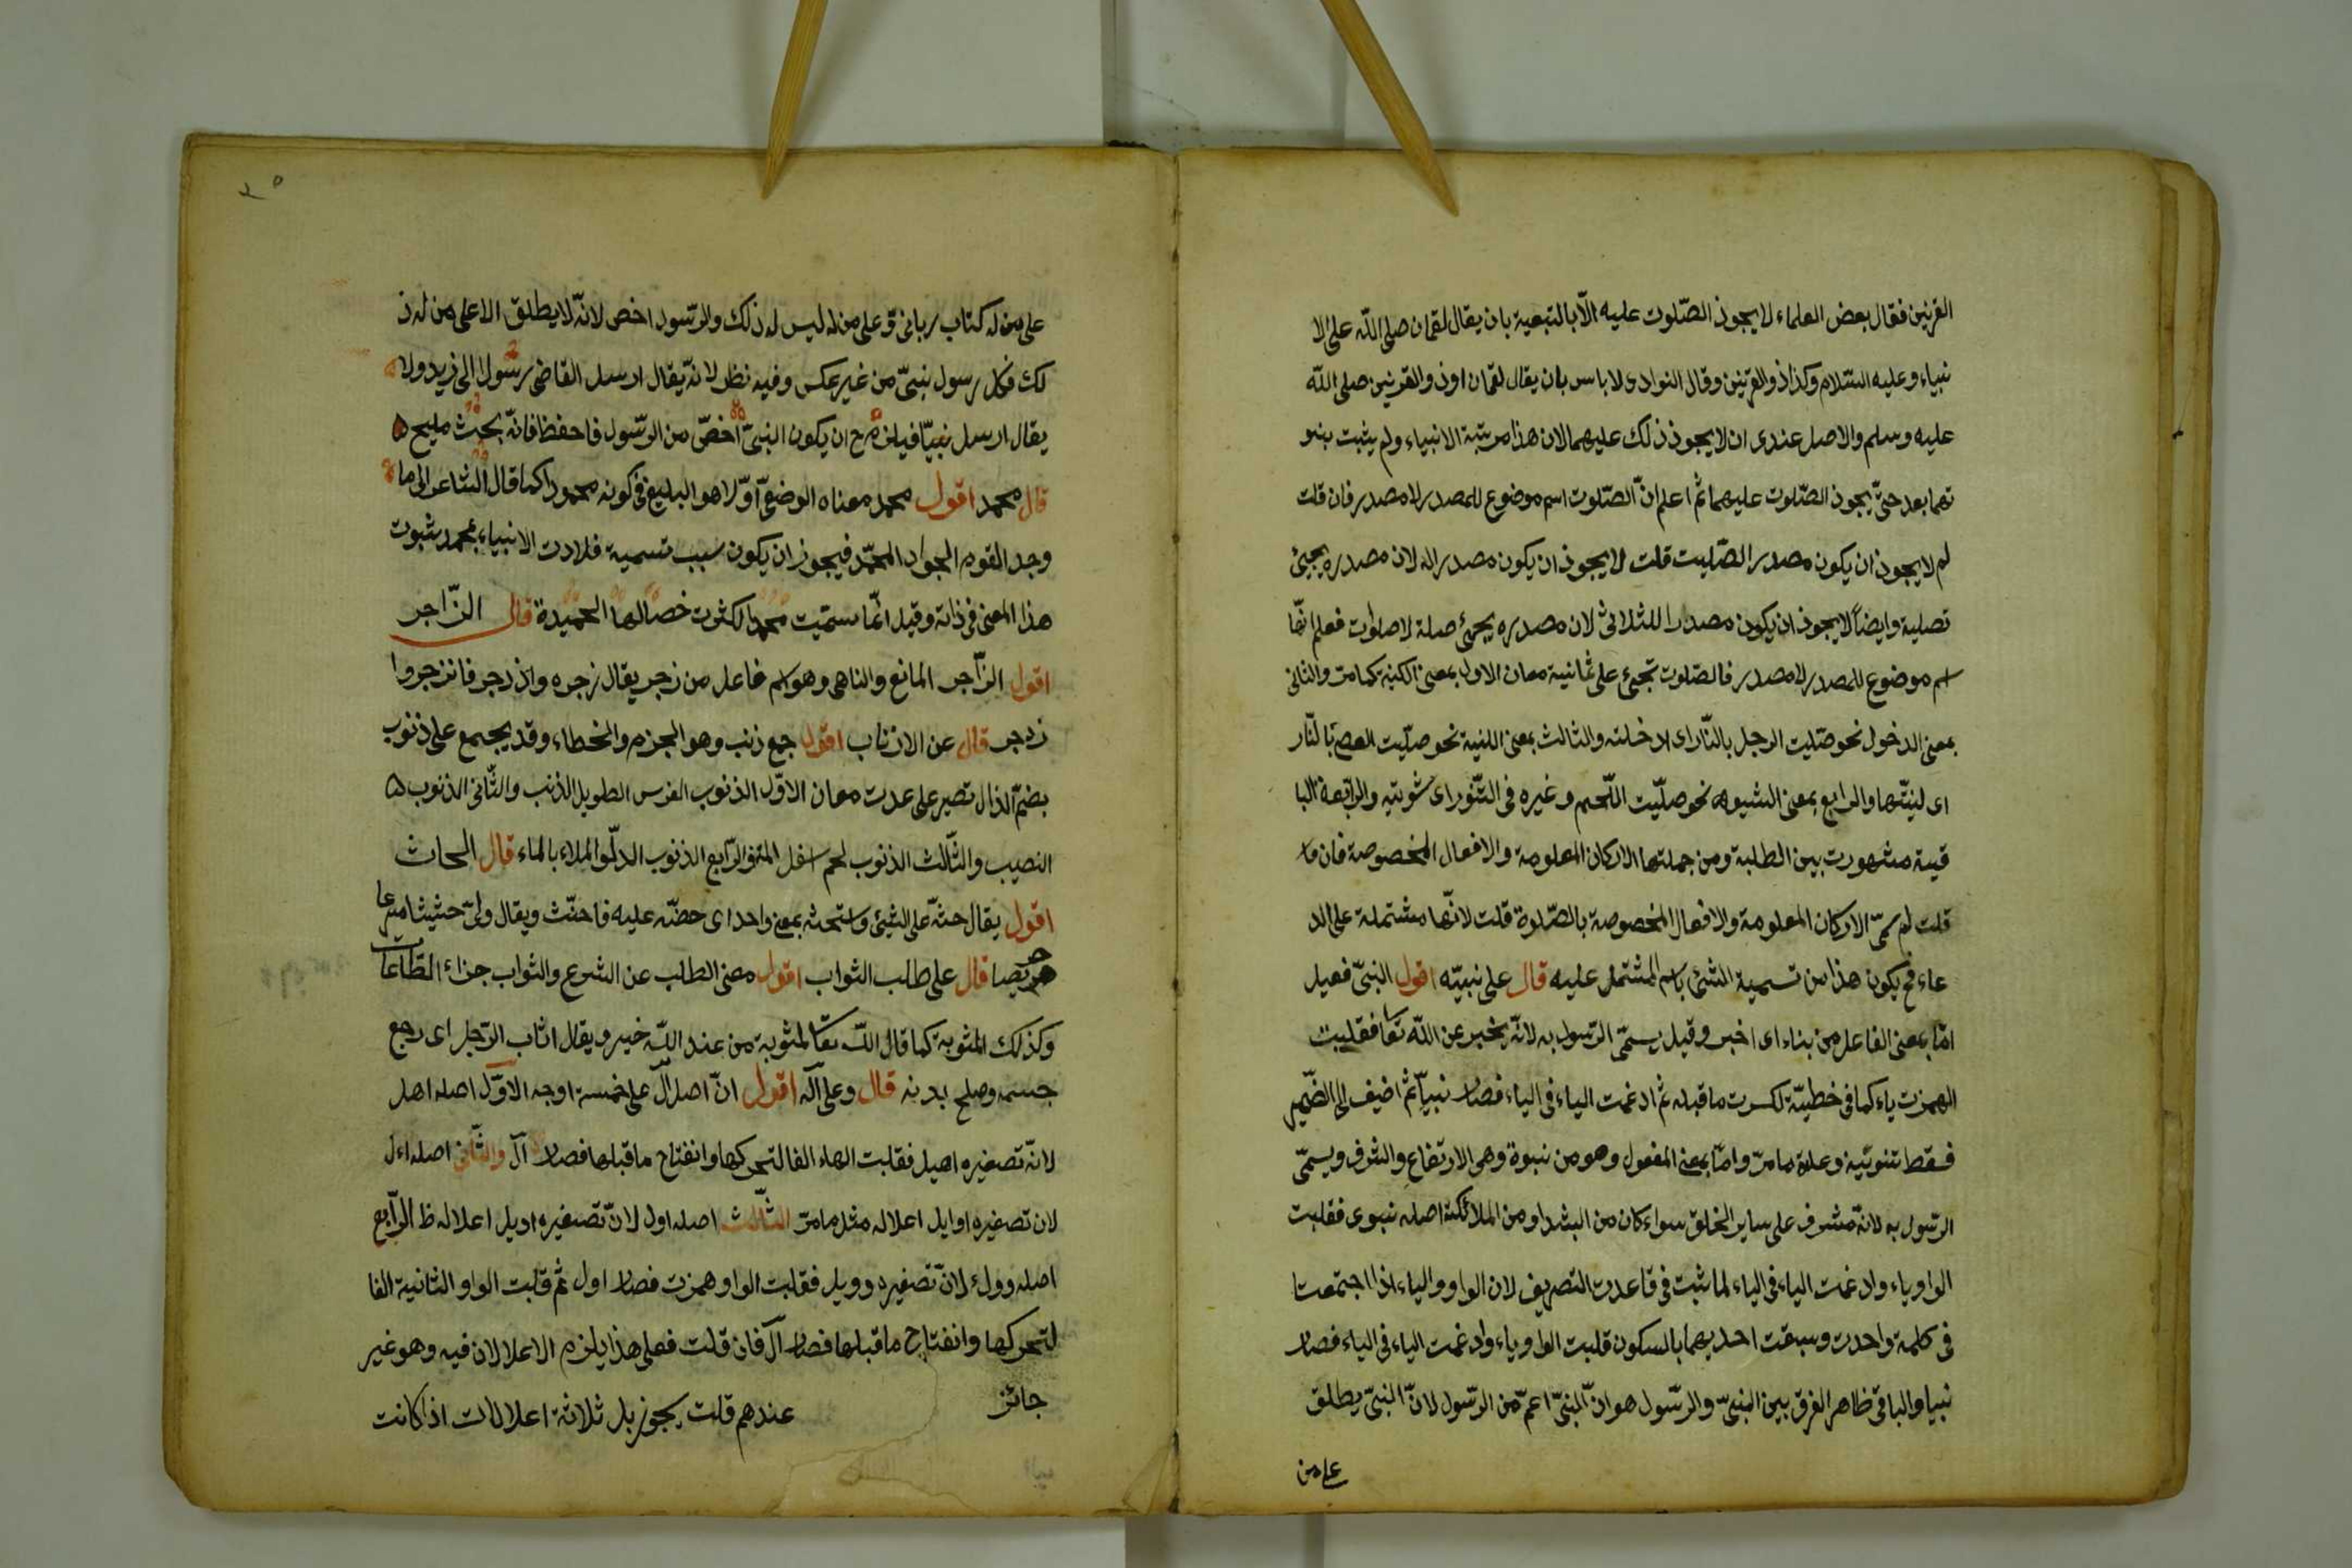 القرنين فقال بعض العلماء لا يجوز الصّلوت عليه الّا بالتبعية بان يقال لقمان صلى اللّه على الا
نبياء وعليه السّلام وكذا ذو القرنين وقال النوادى لا باس بان يقال لقمان او ذو القرنين صلى اللّه
عليه وسلم والاصل عندى ان لا يجوز ذلك عليهما لان هذا مرتبة الانبياء ولم يثبت بنبو
تهما بعد حتىّ يجوز الصّلوت عليهما ثم اعلم انّ الصّلوت اسم موضوع للمصدر لا مصدر فان قلت
لم لا يجوز ان يكون مصدر الصّليت قلت لا يجوز ان يكون مصدرا له لان مصدره يجيئ
تصلية وايضاً لا يجوز ان يكون مصدرا للثلاثى لان مصدره يجيئ صلة لا صلوت فعلم انّها
اسم موضوع للمصدر لا مصدر فالصّلوت تجيئ على ثمانية معان الاول بمعنى الكنية كما مرت والثانى
بمعنى الدخول نحو صّليت الرجل بالنّار اى ادخلته والثالث بمعنى اللنية نحو صلّيت العصا بالنّار
اى لينتّها والرابع بمعنى الشيوه نحو صلّيت اللّحم وغيره فى التنّور اى شويته والرابعة البا
قية مشهورت بين الطلبة ومن جملتها الاركان المعلومة والافعال المخصوصة فان
قلت لم سمىّ الاركان المعلومة والافعال المخصوصة بالصّلوة قلت لانّها مشتملة على الد
عاء فح يكون هذا من تسمية الشئ باسم المشتمل عليه قال على نبيّه اقول النبىّ فعيل
امّا بمعنى الفاعل من بناء اى اخبر وقيل يسمّى الرّسول به لانّه يخبر عن اللّه تعا فقلبت
الهمزت ياء كما فى خطيّة لكسرت ما قبله ثم ادغمت الياء فى الياء فصار نبياّ ثم اضيف الى الضّمير
فسقط تنوينه وعلة ما مرّ وامّا بمعنى المفعول وهو من نبوة وهى الارتفاع والشرف ويسمّى
الرسول به لانّه مشرف على ساير الخلق سواء كان من البشر او من الملائكة اصله نبوى فقلبت
الواو ياء وادغمت الياء فى الياء لما ثبت فى قاعدت التصريف لان الواو والياء اذا اجتمعتا
فى كلمة واحدت وسبقت احديهما بالسكون قلبت الواو ياء وادغمت الياء فى الياء فصار
نبيا والباقى ظاهر الفرق بين النبىّ والرّسول هو انّ النبىّ اعمّ من الرّسول لانّ النبىّ يطلق
على من
على من له كتاب ربانى و على من له ليس له ذلك والرّسول اخص لانّه لا يطلق الا على من له ذ
لك فكل رسول نبىّ من غير عكس وفيه نظر لانّه يقال ارسل القاضى رسولا الى زيد ولا
يقال ارسل نبيّا فيلزم ح ان يكون النبىّ اخصّ من الرّسول فاحفظ فانّه بحث مليح
قال محمد اقول محمد معناه الوضعىّ اوّلا هو البليغ فى كونه محمودا كما قال الشاعر الى ما
وجد القوم الجواد المحمّد فيجوز ان يكون سبب تسمية فلادت الانبياء بمحمد ثبوت
هذا المعنى فى ذاته وقيل انّما سمّيت محمدا لكثرت خصالها الحميدة قال الزّاجر
اقول الزّاجر المانع والناهى وهو اسم فاعل من زجر يقال زجره واذدجر فانزجروا
زدجر قال عن الاذناب اقول جمع ذنب وهو الجرم والخطاء وقد يجمع على ذنوب
بضمّ الذال تصير على عدت معان الاوّل الذنوب الفرس الطويل الذنب والثّانى الذنوب
النصيب والثّالث الذنوب لحم اسفل المتن والرّابع الذنوب الدلّو الملاء بالماء قال الحاث
اقول يقال حثّه على الشئ واستحثه بمعنى واحد اى حضّه عليه فاحتّث ويقال ولىّ حثيثا مسرعا
حريصا قال على طلب الثواب اقول معنى الطلب عن الشرع والثواب جزاء الطّاعات
وكذلك المثوبة كما قال اللّه تعا لمثوبة من عند اللّه خير ويقال اثاب الرّجل اى رجع
جسمه وصلح بدنه قال وعلى آله اقول انّ اصل آل على خمسة اوجه الاوّل اصله اهل
لانّه تصغيره اهيل فقلبت الهاء الفا لتحركها وانفتاح ما قبلها فصار آل والثّانى اصله اءل
لان تصغيره اوايل اعلاله مثل ما مرّ الثّالث اصله اول لانّ تصغيره اويل اعلاله ظ الرّابع
اصله وول لانّ تصغيره وويل فقلبت الواو همزت فصار اول ثم قلبت الواو الثانية الفا
لتحركها وانفتاح ما قبلها فصار آل فان قلت فعلى هذا يلزم الاعلالان فيه وهو غير
جائز عندهم قلت يجوز بل ثلاثة اعلالات اذا كانت